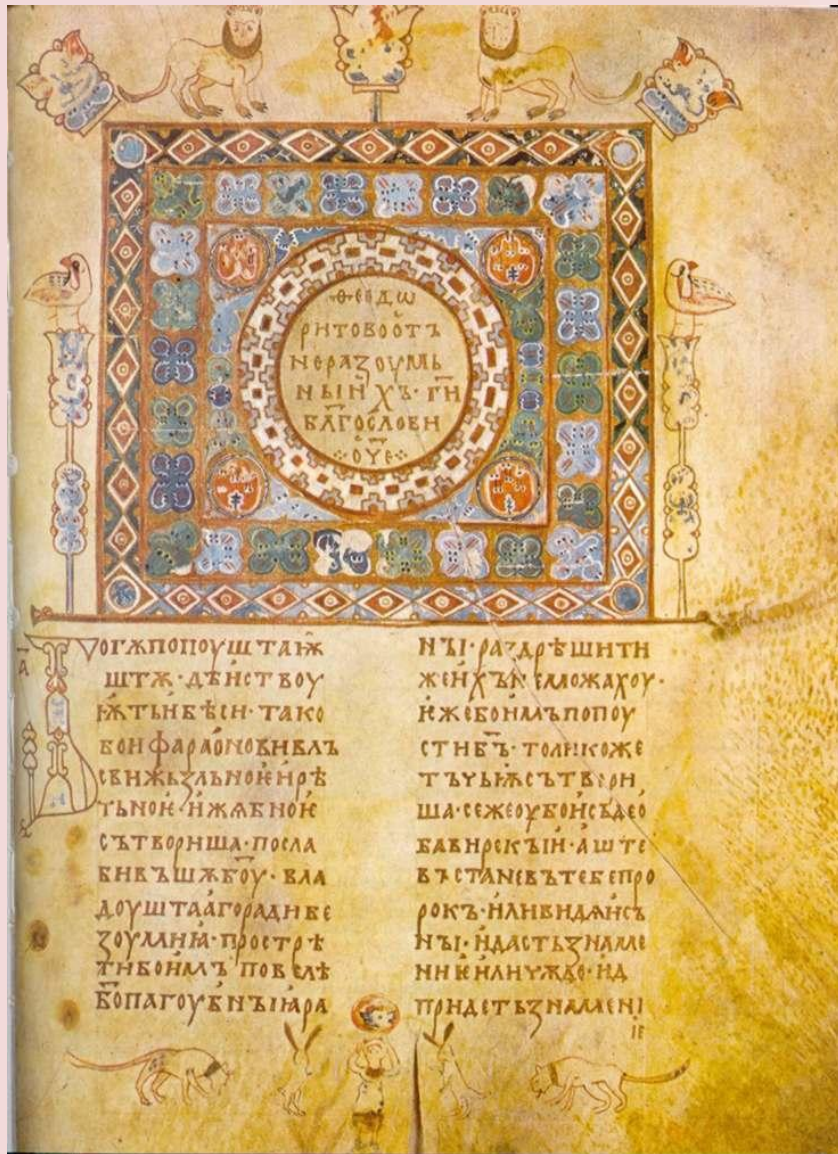 Ѳеодо
ритово отъ
неразоумь
ныихъ· г҃и
бл҃гослови
о҃ч҃е
а҃
Тогѫ попоуштаѭ
штѫ· дѣиствоу
ѭтьи бѣси· тако
бо и фараонови вл
свижьзльноѥ и рѣ
тьноѥ· и жѧбноѥ
сътвориша· посла
бивъшѫ б҃оу· вла
доушта аго ради бе
зоумиꙗ· прострѣ
ти бо имъ повелѣ
б҃о пагоубныꙗ ра
ны· раздрѣшити
же ихъ не можахоу·
ѥже бо имъ попоу
сти б҃ъ· толико же
тъчьѭ сътвори
ша· се же оубо и съдео
бави рекыи· а ште
въстанеть въ тебе про
рокъ· или видѧи съ
ны· и дасть знаме
ниѥ или чюдо· и
придеть знамени
ѥ